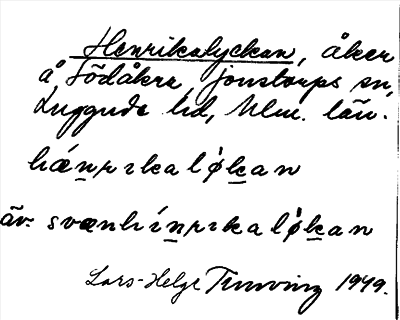 Henrikalyckan, åker
å Södåkra, Jonstorps sn,
Luggude hd, Mlm. län.
hǽnrıkalø̍kan
äv. svænhínrıkaløkan
Lars-Helge 1949.